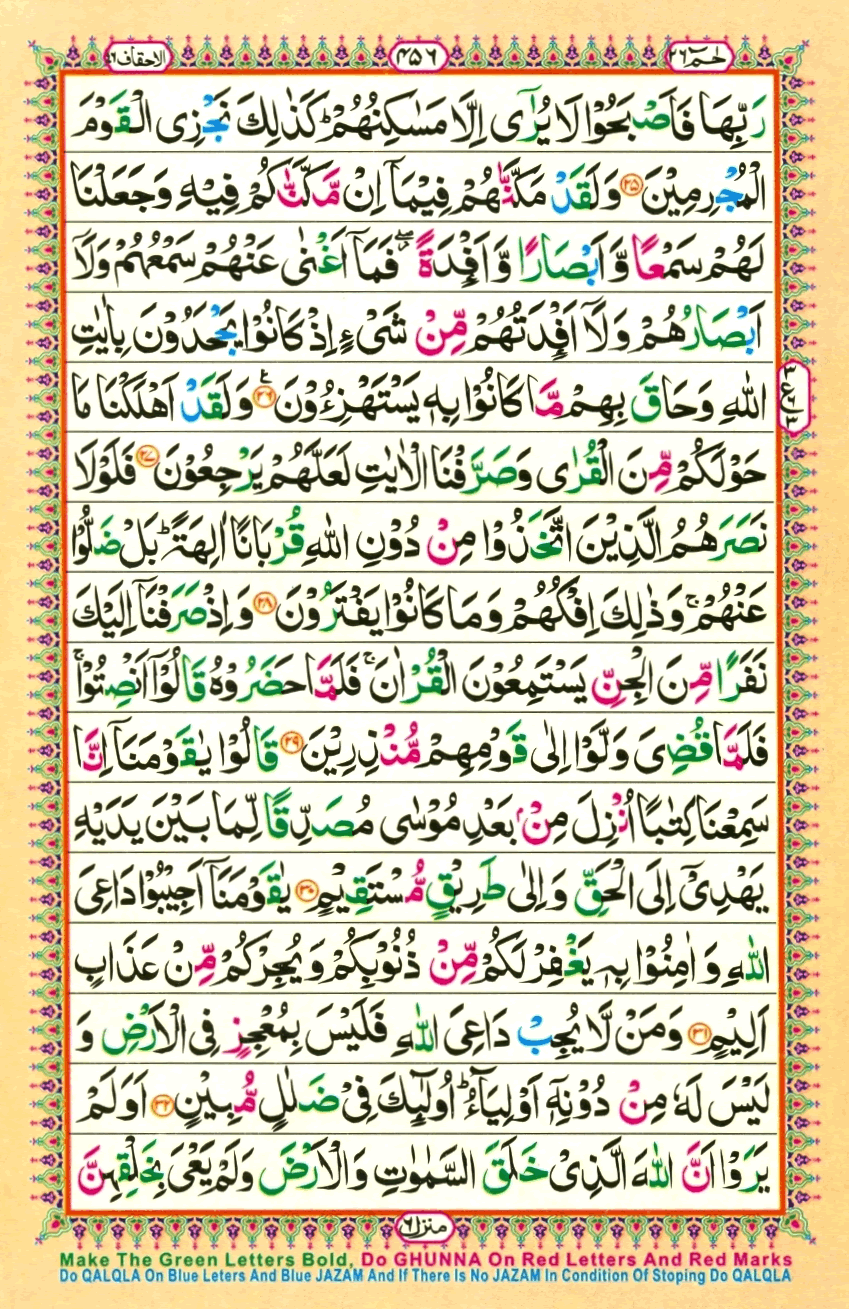 الاحقاف ٤٦
٤٥٦
حٰمٓ ٢٦
رَبِّهَا فَاَصْبَحُوْا لَا يُرٰٓى اِلَّا مَسٰكِنُهُمْ ؕ كَذٰلِكَ نَجْزِى الْقَوْمَ
الْمُجْرِمِيْنَ ﴿۲۵﴾ وَلَقَدْ مَكَّنّٰهُمْ فِيْمَاۤ اِنْ مَّكَّنّٰكُمْ فِيْهِ وَجَعَلْنَا
لَهُمْ سَمْعًا وَّاَبْصَارًا وَّاَفْـِٕدَةً ۖ فَمَاۤ اَغْنٰى عَنْهُمْ سَمْعُهُمْ وَلَاۤ
اَبْصَارُهُمْ وَلَاۤ اَفْـِٕدَتُهُمْ مِّنْ شَىْءٍ اِذْ كَانُوْا يَجْحَدُوْنَ بِاٰيٰتِ
اللّٰهِ وَحَاقَ بِهِمْ مَّا كَانُوْا بِهٖ يَسْتَهْزِءُوْنَ ﴿۲۶﴾ وَلَقَدْ اَهْلَكْنَا مَا
حَوْلَكُمْ مِّنَ الْقُرٰى وَصَرَّفْنَا الْاٰيٰتِ لَعَلَّهُمْ يَرْجِعُوْنَ ﴿۲۷﴾ فَلَوْلَا
نَصَرَهُمُ الَّذِيْنَ اتَّخَذُوْا مِنْ دُوْنِ اللّٰهِ قُرْبَانًا اٰلِهَةً ؕ بَلْ ضَلُّوْا
عَنْهُمْ ۚ وَذٰلِكَ اِفْكُهُمْ وَمَا كَانُوْا يَفْتَرُوْنَ ﴿۲۸﴾ وَاِذْ صَرَفْنَاۤ اِلَيْكَ
نَفَرًا مِّنَ الْجِنِّ يَسْتَمِعُوْنَ الْقُرْاٰنَ ۚ فَلَمَّا حَضَرُوْهُ قَالُوْۤا اَنْصِتُوْا ۚ
فَلَمَّا قُضِىَ وَلَّوْا اِلٰى قَوْمِهِمْ مُّنْذِرِيْنَ ﴿۲۹﴾ قَالُوْا يٰقَوْمَنَاۤ اِنَّا
سَمِعْنَا كِتٰبًا اُنْزِلَ مِنْۢ بَعْدِ مُوْسٰى مُصَدِّقًا لِّمَا بَيْنَ يَدَيْهِ
يَهْدِىْۤ اِلَى الْحَقِّ وَاِلٰى طَرِيْقٍ مُّسْتَقِيْمٍ ﴿۳۰﴾ يٰقَوْمَنَاۤ اَجِيْبُوْا دَاعِىَ
اللّٰهِ وَاٰمِنُوْا بِهٖ يَغْفِرْ لَكُمْ مِّنْ ذُنُوْبِكُمْ وَيُجِرْكُمْ مِّنْ عَذَابٍ
اَلِيْمٍ ﴿۳۱﴾ وَمَنْ لَّا يُجِبْ دَاعِىَ اللّٰهِ فَلَيْسَ بِمُعْجِزٍ فِى الْاَرْضِ وَ
لَيْسَ لَهٗ مِنْ دُوْنِهٖۤ اَوْلِيَآءُ ؕ اُولٰٓئِكَ فِىْ ضَلٰلٍ مُّبِيْنٍ ﴿۳۲﴾ اَوَلَمْ
يَرَوْا اَنَّ اللّٰهَ الَّذِىْ خَلَقَ السَّمٰوٰتِ وَالْاَرْضَ وَلَمْ يَعْىَ بِخَلْقِهِنَّ
منزل ٦
Make The Green Letters Bold, Do GHUNNA On Red Letters And Red Marks
Do QALQLA On Blue Leters And Blue JAZAM And If There Is No JAZAM In Condition Of Stoping Do QALQLA